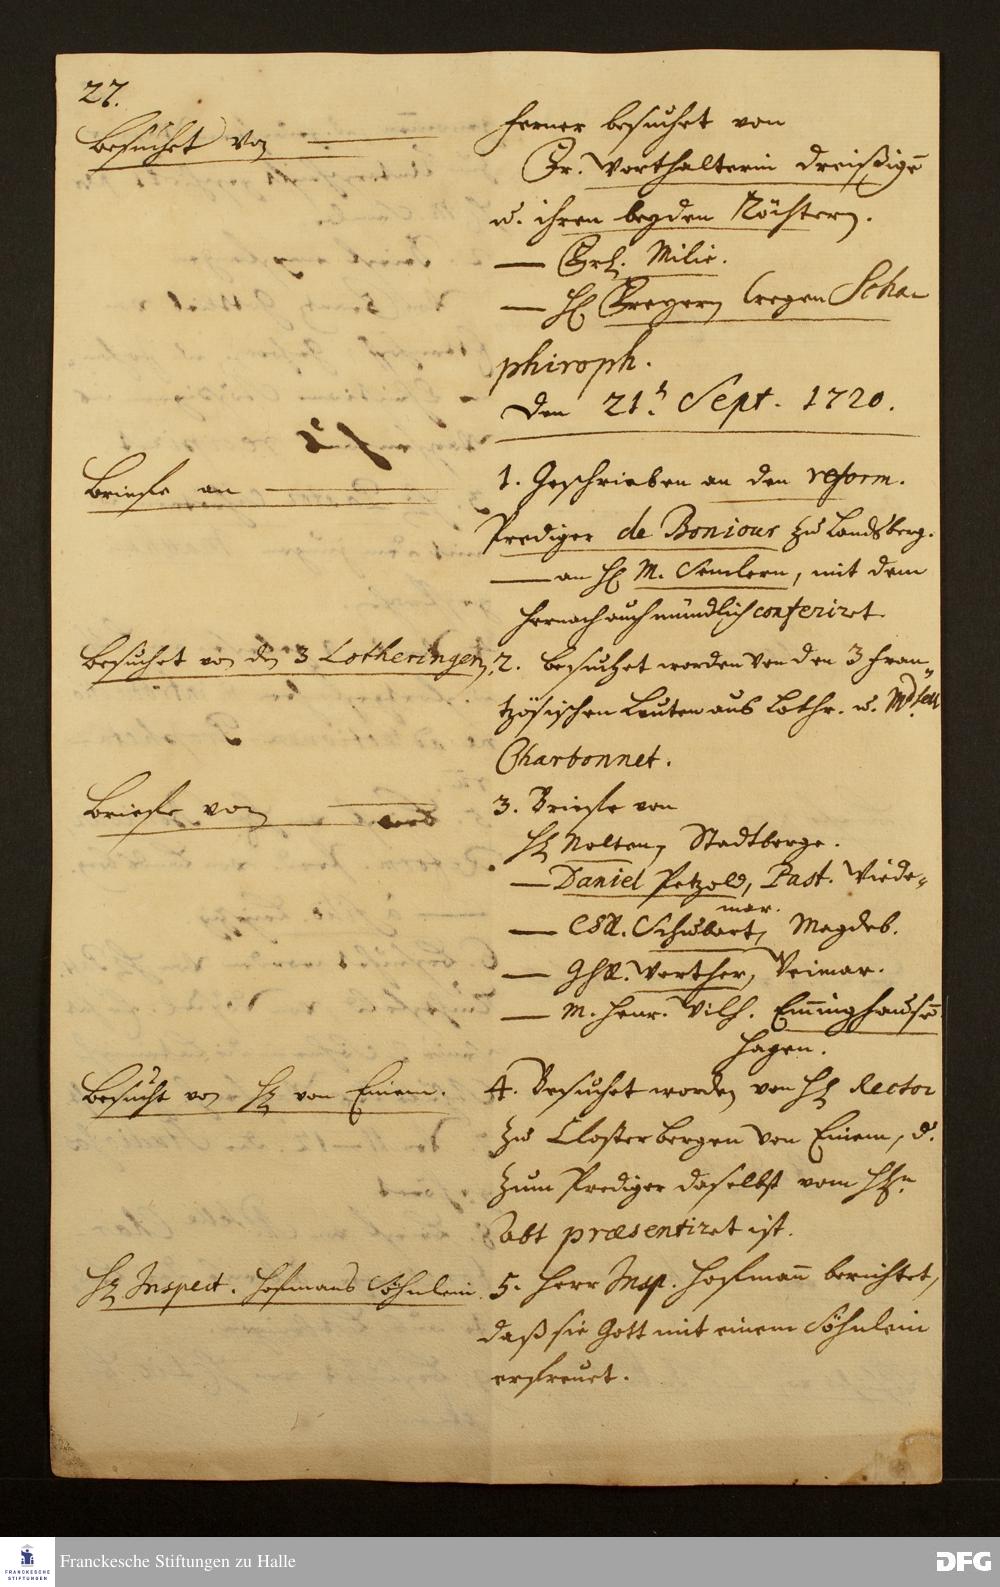 27.
Besuchet von
ferner besuchet von
Fr. Worthalterin Dreißigē
u. ihren beyden Töchtern.
— Frl. Milie.
— H. Freyern (wegen Scha-
phiroph.
Den 21. Sept. 1720.
Briefe an
1. Geschrieben an den reform.
Prediger de Bonjour zu Landsberg.
— an H. M. Semlern, mit dem
hernach auch mündlich conferiret.
Besuchet von den 3 Lotheringern.
2. besuchet worden von den 3 fran-
tzösischen Leuten aus Lothr. u. Mdsell
Charbonnet.
Briefe von
3. Briefe von
H. Nolten, Stadtberge.
— Daniel Petzold, Past. Wiede-
mar.
— Schubart, Magdeb.
— Werther, Weimar.
— M. Henr. Wilh. Em̄inghausē
Hagen.
Besucht von H. von Einem.
4. Besuchet worden von H. Rector
zu Closterbergen von Einem, d.
zum Prediger daselbst vom Hn.
Abt præsentiret ist.
H. Inspect. Hofmans Söhnlein.
5. Herr Insp. Hofman̄ berichtet,
daß sie Gott mit einem Söhnlein
erfreuet.
FRANCKESCHE
STIFTUNGEN
Franckesche Stiftungen zu Halle
DFG